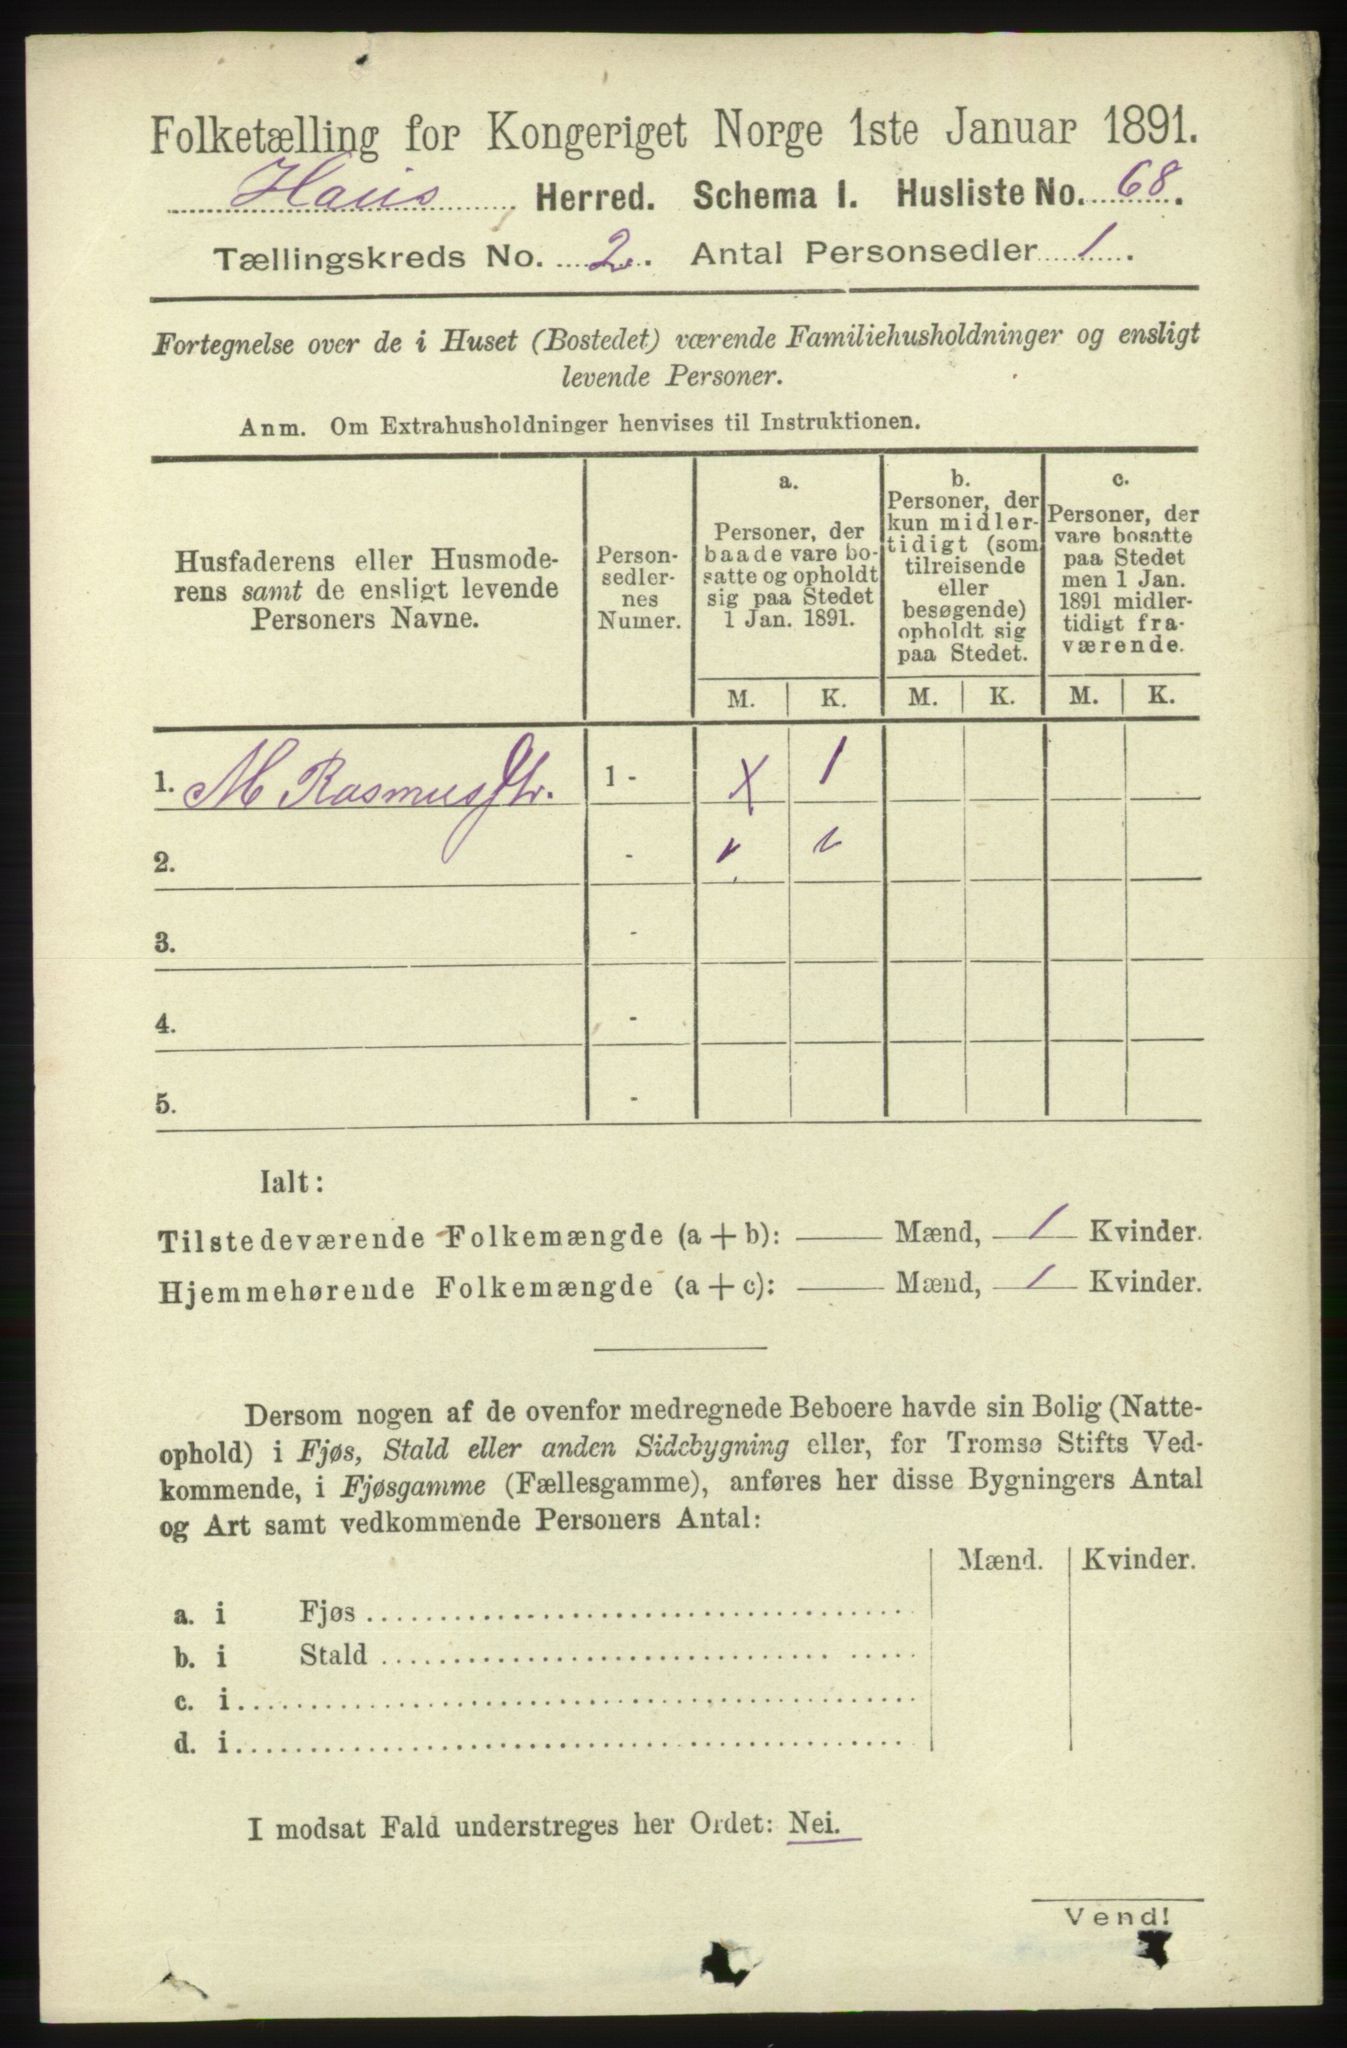 Folketælling for Kongeriget Norge 1ste Januar 1891.
Haus Herred. Schema I. Husliste No. 68.
Tællingskreds No. 2. Antal Personsedler 1.
Fortegnelse over de i Huset (Bostedet) værende Familiehusholdninger og ensligt
levende Personer.
Anm. Om Extrahusholdninger henvises til Instruktionen.
Husfaderens eller Husmode-
rens samt de ensligt levende
Personers Navne.
Person-
sedler-
nes
Numer.
a.
Personer, der
baade vare bo-
satte og opholdt
sig paa Stedet
1 Jan. 1891.
b.
Personer, der
kun midler-
tidigt (som
tilreisende
eller
besøgende)
opholdt sig
paa Stedet.
c.
Personer, der
vare bosatte
paa Stedet
men 1 Jan.
1891 midler-
tidigt fra-
værende.
M. K. M. K. M. K.
1. M Rasmusdtr. 1 - x 1
2. -
3. -
4. -
5. -
Ialt:
Tilstedeværende Folkemængde (a + b): Mænd, 1 Kvinder.
Hjemmehørende Folkemængde (a + c): Mænd, 1 Kvinder.
Dersom nogen af de ovenfor medregnede Beboere havde sin Bolig (Natte-
ophold) i Fjøs, Stald eller anden Sidebygning eller, for Tromsø Stifts Ved-
kommende, i Fjøsgamme (Fællesgamme), anføres her disse Bygningers Antal
og Art samt vedkommende Personers Antal:
Mænd. Kvinder.
a. i Fjøs
b. i Stald
c. i
d. i
I modsat Fald understreges her Ordet: Nei.
Vend!